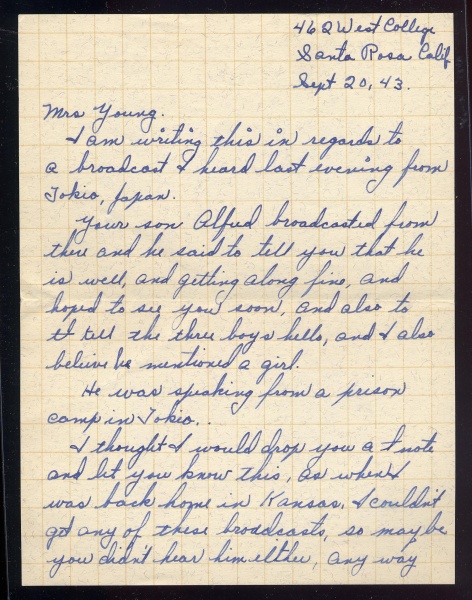 462 West College
Santa Rosa Calif
Sept 20, 43.
Mrs Young.
I am writing this in regards to
a broadcast I heard last evening from
Tokio, Japan.
Your son Alfred broadcasted from
there and he said to tell you that he
is well, and getting along fine, and
hoped to see you soon, and also to
tell the three boys hello, and I also
believe he mentioned a girl.
He was speaking from a prison
camp in Tokio..
I thought I would drop you a note
and let you know this, as when I
was back home in Kansas, I couldn't
get any of these broadcasts, so maybe
you didn't hear him either, any way